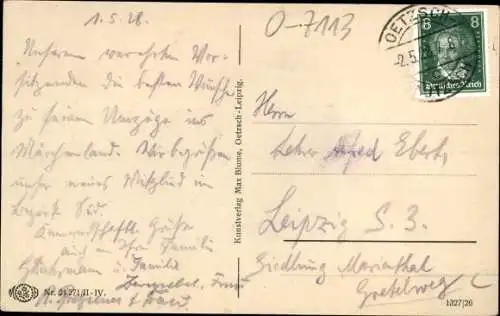 1.5.28.
O-7113
Unserem verehrten Vor-
sitzenden die besten Wünsche
zu seinem Umzuge ins
Märchenland. Wir begrüßen
unser neues Mitglied im
Bezirk Süd.
Kameradschaftl. Grüße
auch an Ihre Familie
u. Familie
Nr. 21271/II-IV.
Kunstverlag Max Blume, Oetzsch-Leipzig.
OETZSCH
-2.5.28
8 8
Deutsches Reich
Herrn
Lehrer Alfred Ebert,
Leipzig S. 3.
Siedlung Marienthal
Gretelweg
1327/26